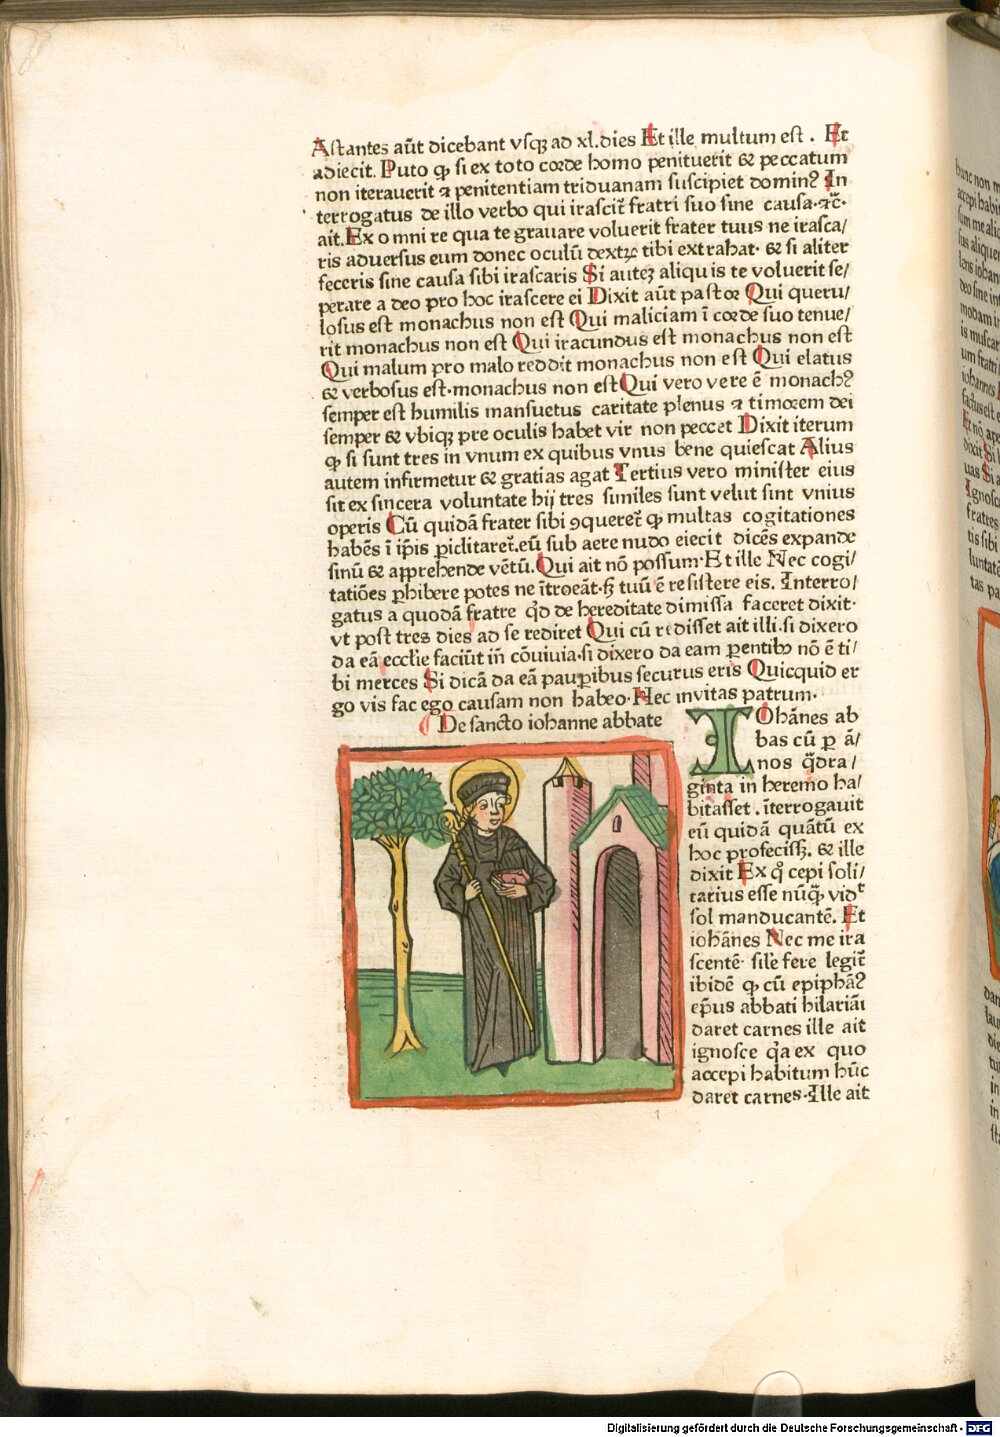 Astantes aūt dicebant vsqꝫ ad xl.dies Et ille multum est . Et
adiecit. Puto ꝙ si ex toto corde homo penituerit & peccatum
non iterauerit ⁊ penitentiam triduanam suscipiet dominꝰ In
terrogatus de illo verbo qui irascit̄ fratri suo sine causa.⁊c̄.
ait.Ex omni re qua te grauare voluerit frater tuus ne irasca/
ris aduersus eum donec oculū dextꝝ tibi extrahat. & si aliter
feceris sine causa sibi irascaris Si autēꝫ aliquis te voluerit se/
perare a deo pro hoc irascere ei Dixit aūt pastor Qui queru/
losus est monachus non est Qui maliciam ī corde suo tenue/
rit monachus non est Qui iracundus est monachus non est
Qui malum pro malo reddit monachus non est Qui elatus
& verbosus est.monachus non est Qui vero vere ē monachꝰ
semper est humilis mansuetus caritate plenus ⁊ timorem dei
semper & vbiqꝫ pre oculis habet vir non peccet Dixit iterum
ꝙ si sunt tres in vnum ex quibus vnus bene quiescat Alius
autem infirmetur & gratias agat Tertius vero minister eius
sit ex sincera voluntate hij tres similes sunt velut sint vnius
operis Cū quidā frater sibi ꝯqueret̄ ꝙ multas cogitationes
habēs ī ip̄is ꝑiclitaret̄.eū sub aere nudo eiecit dicēs expande
sinū & apprehende vētū.Qui ait nō possum.Et ille Nec cogi/
tatiōes ꝓhibere potes ne ītroeāt.sꝫ tuū ē resistere eis. Interro/
gatus a quodā fratre qd̄ de hereditate dimissa faceret dixit.
vt post tres dies ad se rediret Qui cū redisset ait illi.si dixero
da eā eccl̄ie faciūt in̄ cōuiuia.si dixero da eam ꝑentibꝰ nō ē ti/
bi merces Si dicā da eā pauꝑibus securus eris Quicquid er
go vis fac ego causam non habeo.Nec inuitas patrum.
De sancto iohanne abbate
IOhānes ab
bas cū ꝑ ā/
nos q̄dra/
ginta in heremo ha/
bitasset . īterrogauit
eū quidā quātū ex
hoc profecissꝫ. & ille
dixit Ex qͦ cepi soli/
tarius esse nūꝗ̄ vidᵗ
sol manducantē. Et
iohānes Nec me ira
scentē. sil̄e fere legit̄
ibidē ꝙ cū epiphāꝰ
ep̄us abbati hilariāi
daret carnes ille ait
ignosce q̄a ex quo
accepi habitum hūc
daret carnes.Ille ait
Digitalisierung gefördert durch die Deutsche Forschungsgemeinschaft - DFG